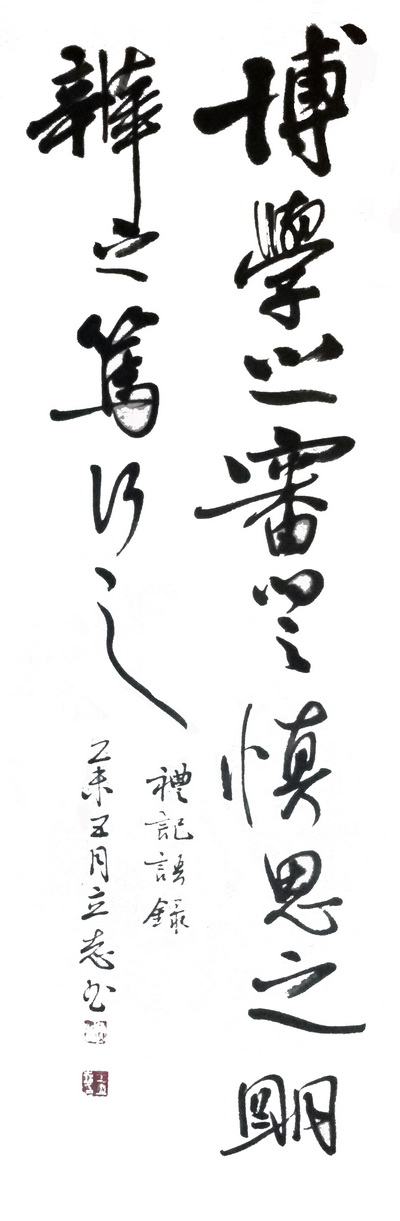 博學之審問之慎思之明
辨之篤行之
禮記語錄
乙未五月立志书